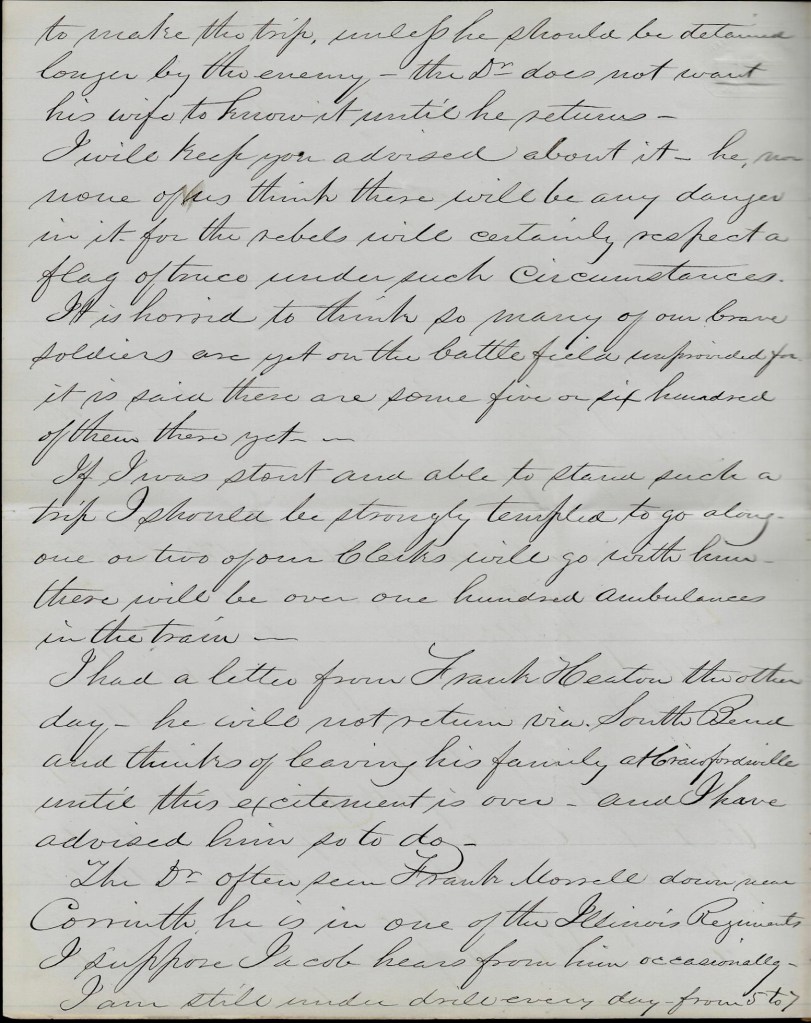 to make the trip, unless he should be detained
longer by the enemy – the Dr does not want
his wife to know it until he returns –
I will keep you advised about it – he, nor
none of us think there will be any danger
in it. for the rebels will certainly respect a
flag of truce under such circumstances.
It is horrid to think so many of our brave
soldiers are yet on the battle field unprovided for.
it is said there are some five or six hundred
of them there yet – –
If I was stout and able to stand such a
trip I should be strongly tempted to go along –
one or two of our Clerks will go with him –
there will be over one hundred ambulances
in the train –
I had a letter from Frank Heaton the other
day – he will not return via. South Bend
and thinks of leaving his family at Crawfordsville
until this excitement is over – and I have
advised him so to do –
The Dr often seen Frank Morrell down near
Corrinth, he is in one of the Illinois Regiments
I suppose Jacob hears from him occasionally –
I am still under drill every day – from 5 to 7